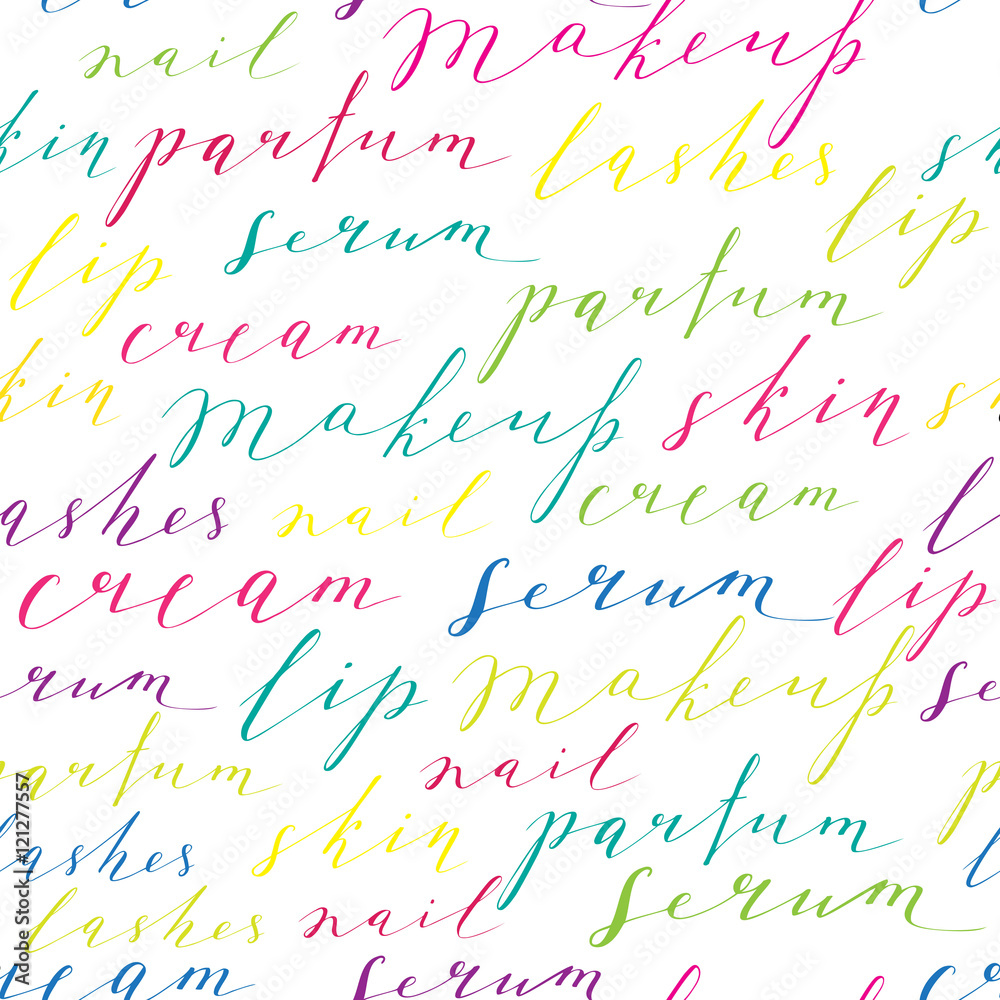 nail makeup
kin parfum lashes sk
lip serum lip
cream parfum
kin makeup skin s
ashes nail cream l
cream serum lip
rum lip makeup se
arfum nail p
lashes skin parfum l
lashes nail serum
eam serum sk lip cr
Adobe Stock | #121277557